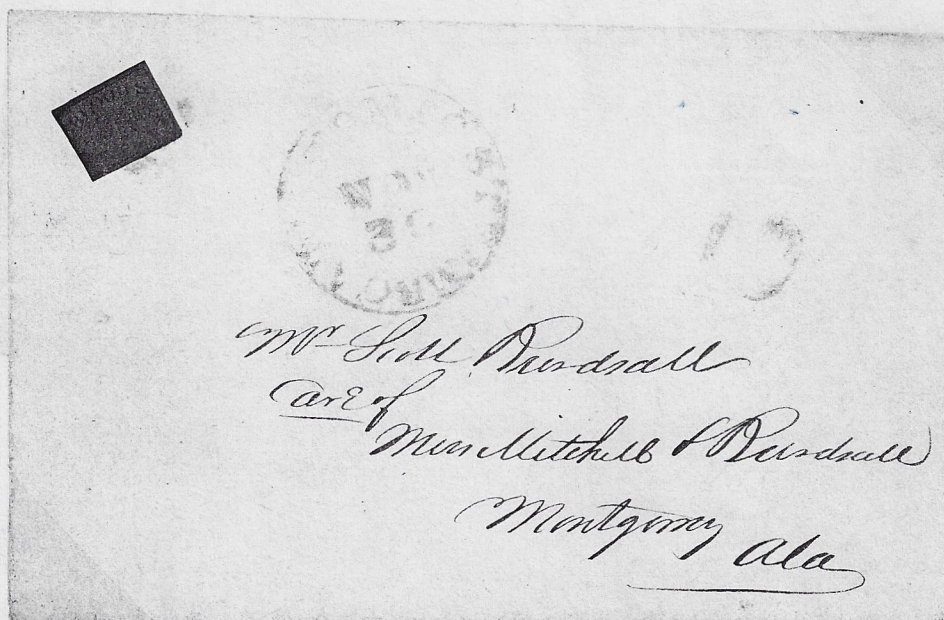 NOV
30
Mr Scott Burdsall
Care of
Mess Mitchell & Burdsall
Montgomry
Ala